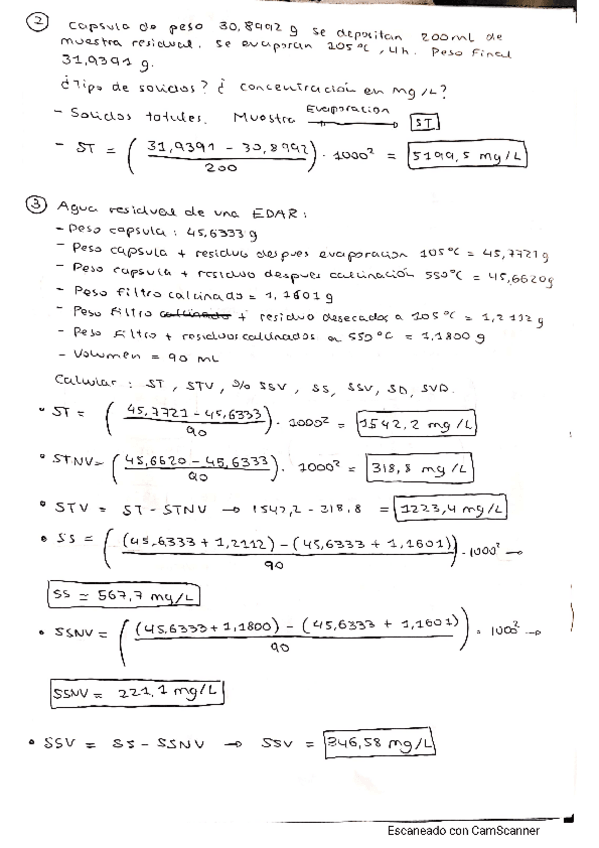 ② capsula de peso 30,8992 g se depositan 200ml de
muestra residual. se evaporan 105ºC, 4h. Peso final
31,9391 g.
¿Tipo de solidos? ¿concentración en mg/L?
- Solidos totales. Muestra Evaporacion → ST
- ST = ((31,9391 - 30,8992) / 200) · 1000² = 5199,5 mg/L
③ Agua residual de una EDAR:
- Peso capsula: 45,6333 g
- Peso capsula + residuo despues evaporacion 105ºC = 45,7721 g
- Peso capsula + residuo despues calcinación 550ºC = 45,6620g
- Peso filtro calcinado = 1,1601 g
- Peso filtro + residuo desecados a 105ºC = 1,2112 g
- Peso filtro + residuos calcinados a 550ºC = 1,1800 g
- Volumen = 90 mL
Calcular: ST, STV, % SSV, SS, SSV, SD, SVD.
• ST = ((45,7721 - 45,6333) / 90) · 1000² = 1542,2 mg/L
• STNV = ((45,6620 - 45,6333) / 90) · 1000² = 318,8 mg/L
• STV = ST - STNV → 1542,2 - 318,8 = 1223,4 mg/L
• SS = (((45,6333 + 1,2112) - (45,6333 + 1,1601)) / 90) · 1000² →
SS = 567,7 mg/L
• SSNV = (((45,6333 + 1,1800) - (45,6333 + 1,1601)) / 90) · 1000² →
SSNV = 221,1 mg/L
• SSV = SS - SSNV → SSV = 346,58 mg/L
Escaneado con CamScanner